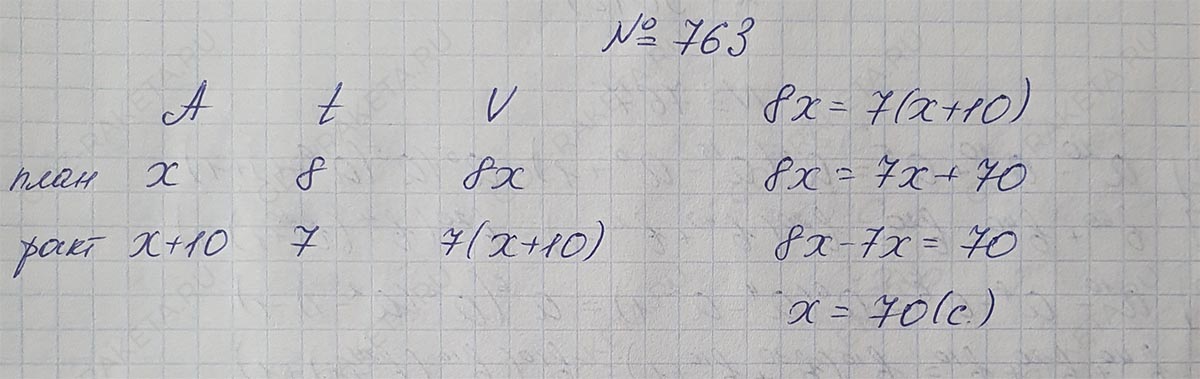 № 763
A t V
план x 8 8x
факт x+10 7 7(x+10)
8x = 7(x+10)
8x = 7x + 70
8x - 7x = 70
x = 70(с.)